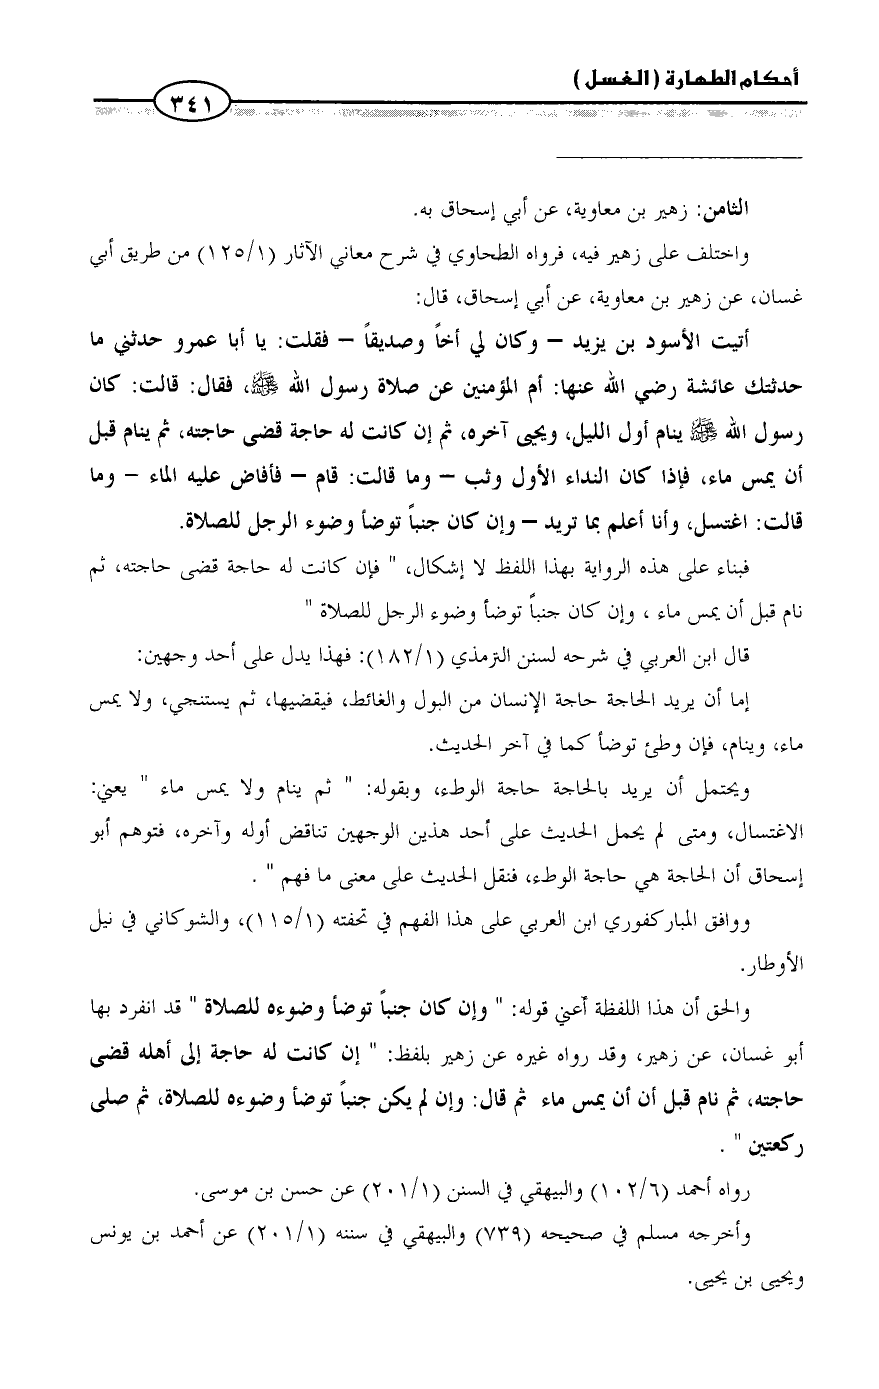 أحكام الطهارة (الغسل)
٣٤١
الثامن: زهير بن معاوية، عن أبي إسحاق به.
واختلف على زهير فيه، فرواه الطحاوي في شرح معاني الآثار (١٢٥/١) من طريق أبي
غسان، عن زهير بن معاوية، عن أبي إسحاق، قال:
أتيت الأسود بن يزيد – وكان لي أخاً وصديقاً – فقلت: يا أبا عمرو حدثني ما
حدثتك عائشة رضي الله عنها: أم المؤمنين عن صلاة رسول الله ﷺ، فقال: قالت: كان
رسول الله ﷺ ينام أول الليل، ويحيى آخره، ثم إن كانت له حاجة قضى حاجته، ثم ينام قبل
أن يمس ماء، فإذا كان النداء الأول وثب – وما قالت: قام – فأفاض عليه الماء – وما
قالت: اغتسل، وأنا أعلم بما تريد – وإن كان جنباً توضأ وضوء الرجل للصلاة.
فبناء على هذه الرواية بهذا اللفظ لا إشكال، " فإن كانت له حاجة قضى حاجته، ثم
نام قبل أن يمس ماء ، وإن كان جنباً توضأ وضوء الرجل للصلاة "
قال ابن العربي في شرحه لسنن الترمذي (١٨٢/١): فهذا يدل على أحد وجهين:
إما أن يريد الحاجة حاجة الإنسان من البول والغائط، فيقضيها، ثم يستنجي، ولا يمس
ماء، وينام، فإن وطئ توضأ كما في آخر الحديث.
ويحتمل أن يريد بالحاجة حاجة الوطء، وبقوله: " ثم ينام ولا يمس ماء " يعني:
الاغتسال، ومتى لم يحمل الحديث على أحد هذين الوجهين تناقض أوله وآخره، فتوهم أبو
إسحاق أن الحاجة هي حاجة الوطء، فنقل الحديث على معنى ما فهم " .
ووافق المباركفوري ابن العربي على هذا الفهم في تحفته (١١٥/١)، والشوكاني في نيل
الأوطار.
والحق أن هذا اللفظة أعني قوله: " وإن كان جنباً توضأ وضوءه للصلاة " قد انفرد بها
أبو غسان، عن زهير، وقد رواه غيره عن زهير بلفظ: " إن كانت له حاجة إلى أهله قضى
حاجته، ثم نام قبل أن أن يمس ماء ثم قال: وإن لم يكن جنباً توضأ وضوءه للصلاة، ثم صلى
ركعتين " .
رواه أحمد (١٠٢/٦) والبيهقي في السنن (٢٠١/١) عن حسن بن موسى.
وأخرجه مسلم في صحيحه (٧٣٩) والبيهقي في سننه (٢٠١/١) عن أحمد بن يونس
ويحيى بن يحيى.